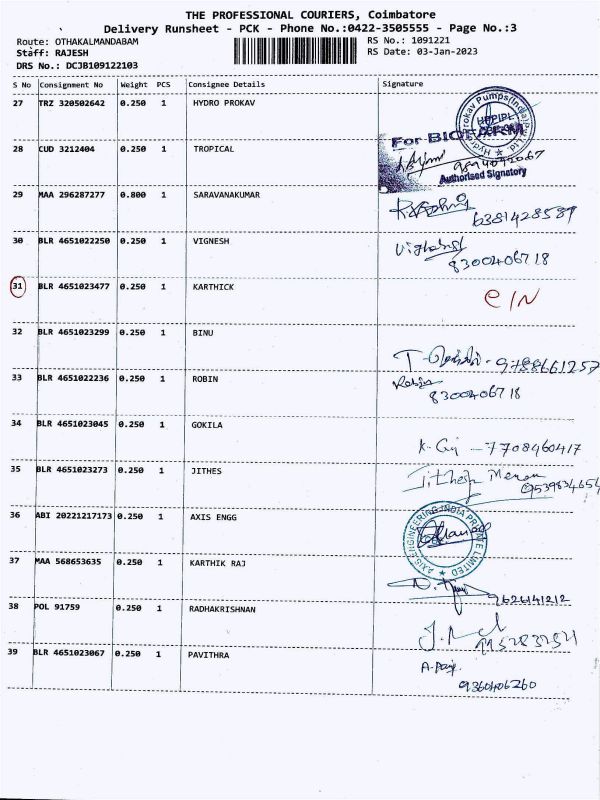 THE PROFESSIONAL COURIERS, Coimbatore
Delivery Runsheet - PCK - Phone No.:0422-3505555 - Page No.:3
Route: OTHAKALMANDABAM RS No.: 1091221
Staff: RAJESH RS Date: 03-Jan-2023
DRS No.: DCJB109122103
S No Consignment No Weight PCS Consignee Details Signature
27 TRZ 320502642 0.250 1 HYDRO PROKAV
28 CUD 3212404 0.250 1 TROPICAL
For BIOFARM
Authorised Signatory
29 MAA 296287277 0.800 1 SARAVANAKUMAR
6381428589
30 BLR 4651022250 0.250 1 VIGNESH
8300406718
31 BLR 4651023477 0.250 1 KARTHICK
C/N
32 BLR 4651023299 0.250 1 BINU
9788661257
33 BLR 4651022236 0.250 1 ROBIN
Robin
8300406718
34 BLR 4651023045 0.250 1 GOKILA
7708460417
35 BLR 4651023273 0.250 1 JITHES
Jithesh Menon
9539834654
36 ABI 20221217173 0.250 1 AXIS ENGG
AXIS ENGINEERING INDIA PRIVATE LIMITED
37 MAA 568653635 0.250 1 KARTHIK RAJ
9626141212
38 POL 91759 0.250 1 RADHAKRISHNAN
39 BLR 4651023067 0.250 1 PAVITHRA
9360406260